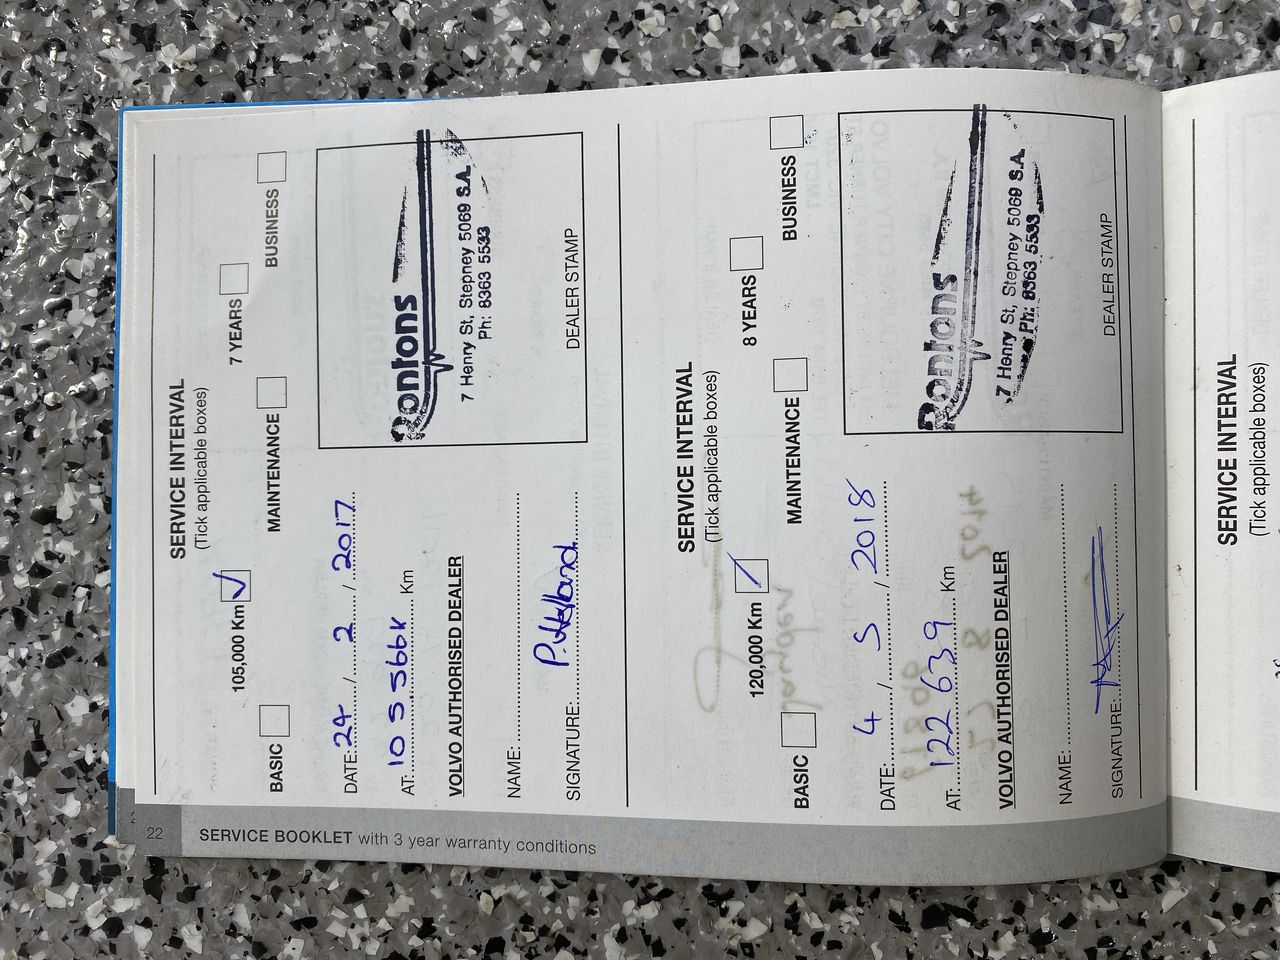 SERVICE INTERVAL
(Tick applicable boxes)
105,000 Km ✓ 7 YEARS
BASIC MAINTENANCE BUSINESS
DATE: 24 / 2 / 2017
AT: 105566k Km
VOLVO AUTHORISED DEALER
NAME:
SIGNATURE:
Rontons
7 Henry St, Stepney 5069 S.A.
Ph: 8363 5533
DEALER STAMP
SERVICE INTERVAL
(Tick applicable boxes)
120,000 Km ✓ 8 YEARS
BASIC MAINTENANCE BUSINESS
DATE: 4 / 5 / 2018
AT: 122639 Km
VOLVO AUTHORISED DEALER
NAME:
SIGNATURE:
Rontons
7 Henry St, Stepney 5069 S.A.
Ph: 8363 5533
DEALER STAMP
22 SERVICE BOOKLET with 3 year warranty conditions
SERVICE INTERVAL
(Tick applicable boxes)